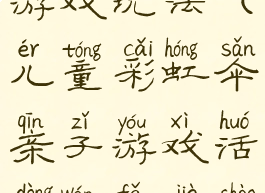 游戏玩法（
ér tóng cǎi hóng sǎn
儿童彩虹伞
qīn zǐ yóu xì huó
亲子游戏活